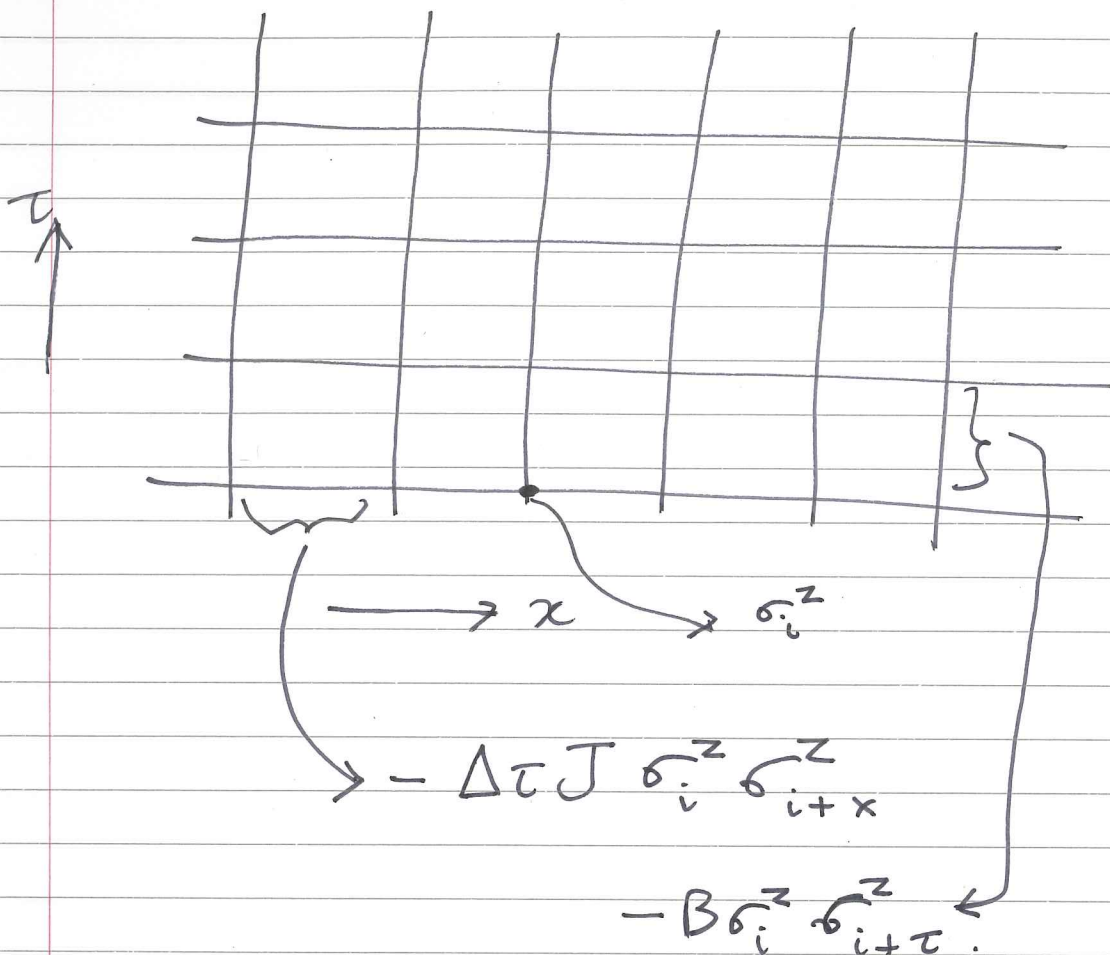 τ
x
σᵢᶻ
- Δτ J σᵢᶻ σᵢ₊ₓᶻ
- B σᵢᶻ σ_{i+τ}ᶻ .